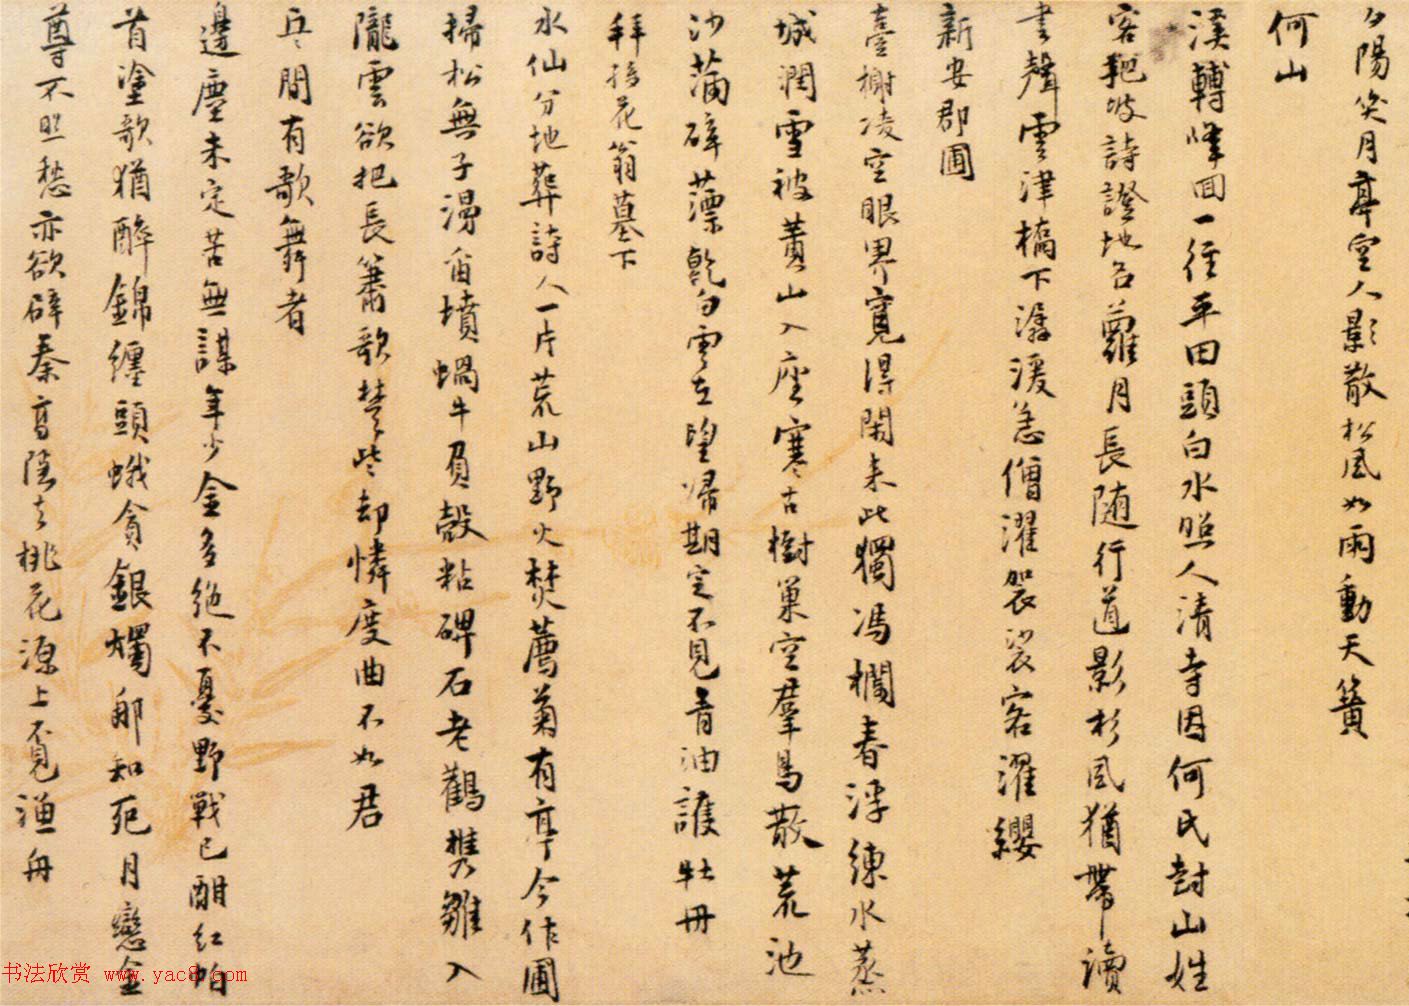 夕陽笑月亭空人影散松風如雨動天簧
何山
溪轉峰回一徑平田頭白水照人清寺因何氏封山姓
客耙坡詩證地名蘿月長随行道影杉風猶帶讀
書聲雲津橋下潺湲急僧濯袈裟客濯纓
新安郡圃
臺榭凌空眼界寬得閑來此獨馮欄春浮練水蒸
城潤雪被黄山入座寒古樹巢空羣鳥散荒池
沙滿碎蓱乾白雲在望歸期定不見青油護牡丹
拜孫花翁墓下
水仙分地葬詩人一片荒山野火焚薦菊有亭今作圃
掃松無子漫留墳蝸牛負殼粘碑石老鸛携雛入
隴雲欲把長簫歌楚些却憐度曲不如君
兵間有歌舞者
邊塵未定苦無謀年少金多絶不憂野戰已酣紅帕
首塗歌猶醉錦纏頭蛾貪銀燭那知死月戀金
尊不照愁亦欲辟秦高隱去桃花源上覓漁舟
书法欣赏 www.yac8.com